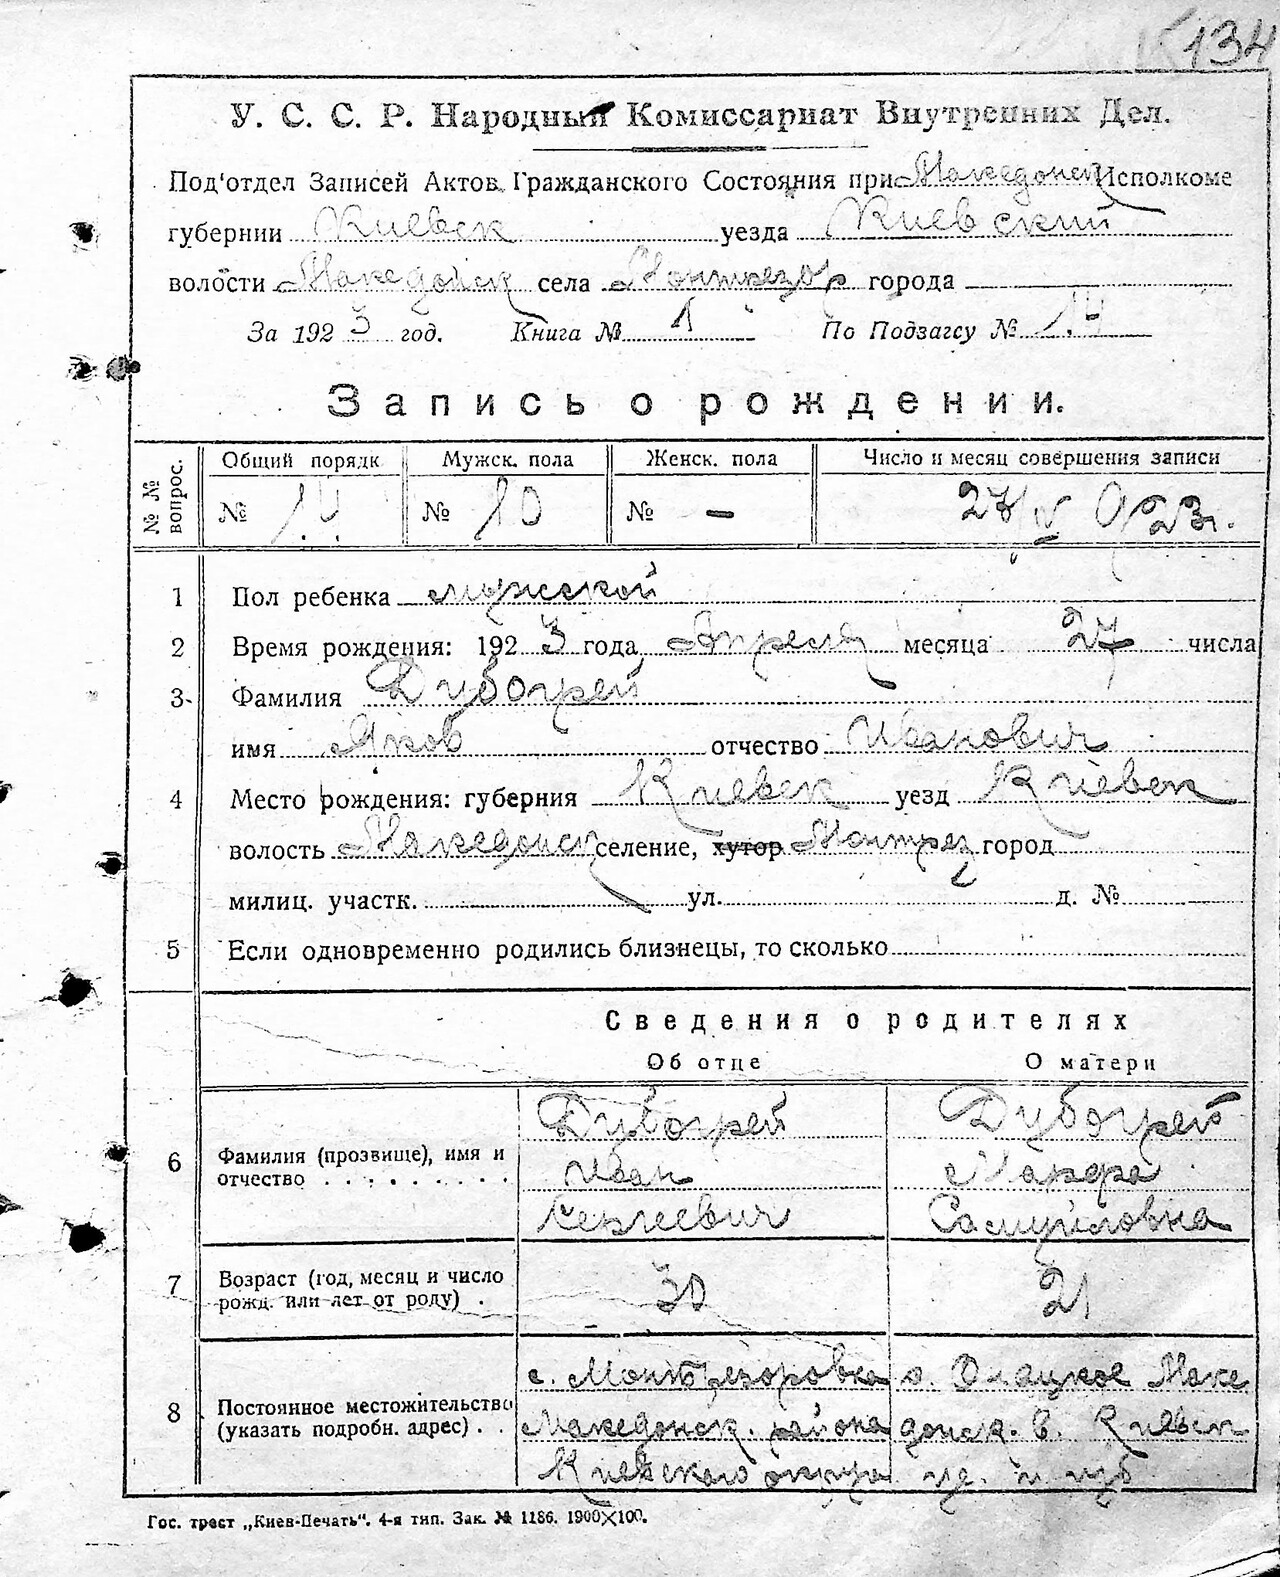 134
У. С. С. Р. Народный Комиссариат Внутренних Дел.
Под'отдел Записей Актов Гражданского Состояния при Македонск Исполкоме
губернии Киевск уезда Киевский
волости Македонск села Монтрезор города
За 1923 год. Книга № 1 По Подзагсу № 14
Запись о рождении.
№ № вопрос. Общий порядк Мужск. пола Женск. пола Число и месяц совершения записи
№ 14 № 10 № - 27/V 923г.
1 Пол ребенка мужской
2 Время рождения: 1923 года Апреля месяца 27 числа
3 Фамилия Дубогрей
имя Яков отчество Иванович
4 Место рождения: губерния Киевск уезд Киевск
волость Македонск селение, хутор Монтрез город
милиц. участк. ул. д. №
5 Если одновременно родились близнецы, то сколько
Сведения о родителях
Об отце О матери
6 Фамилия (прозвище), имя и отчество Дубогрей Иван Сергеевич Дубогрей Марфа Самуиловна
7 Возраст (год, месяц и число рожд. или лет от роду) . 30 21
8 Постоянное местожительство (указать подробн. адрес) . . с. Монтрезоровка Македонск. района Киевского округа Маке донск. в. Киевск уе. и губ
Гос. трест „Киев-Печать“. 4-я тип. Зак. № 1186. 1900×100.